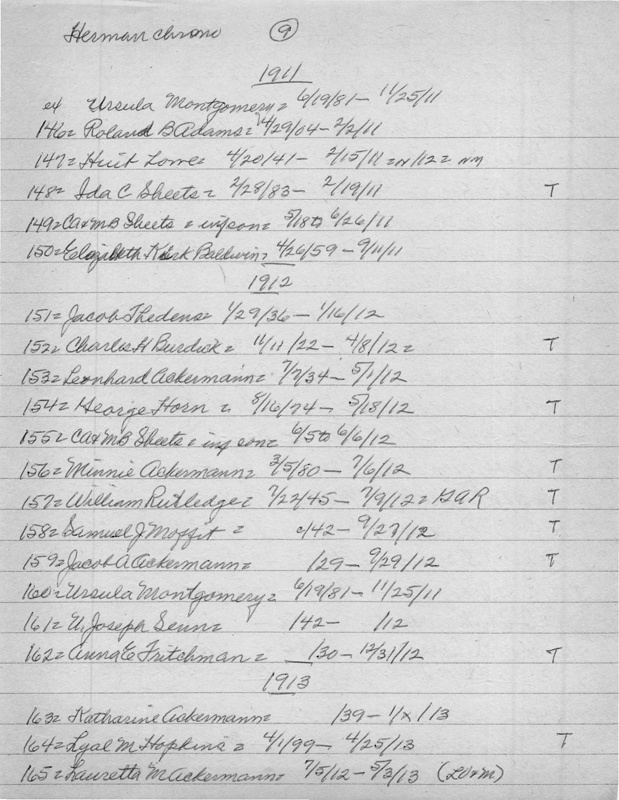 Herman chrono 9
1911
ex Ursula Montgomery= 6/19/81 - 11/25/11
146= Roland B Adams= 4/29/04 - 2/2/11
147= Huit Lowe= 4/20/41 - 2/15/11 = N/12 = NM
148= Ida C Sheets= 2/28/83 - 2/19/11 T
149= CA&MB Sheets = inf son= 5/18 to 6/26/11
150= Elizabeth Kirk Baldwin= 4/26/59 - 9/11/11
1912
151= Jacob Thedens= 1/29/36 - 1/16/12
152= Charles H Burdick= 11/11/22 - 4/8/12= T
153= Leonhard Ackermann= 7/7/34 - 5/1/12
154= George Horn = 8/16/74 - 5/18/12 T
155= CA&MB Sheets = inf son= 6/5 to 6/6/12
156= Minnie Ackermann= 3/5/80 - 7/6/12 T
157= William Rutledge= 7/22/45 - 7/9/12 = GAR T
158= Samuel J Moffit = c/42 - 9/27/12 T
159= Jacob A Ackermann= /29 - 9/29/12 T
160= Ursula Montgomery= 6/19/81 - 11/25/11
161= N. Joseph Senn= /42 - /12
162= Anna E Fritchman= /30 - 12/31/12 T
1913
163= Katharine Ackermann= /39 - 1/x/13
164= Lyal M Hopkins = 4/1/99 - 4/25/13 T
165= Lauretta M Ackermann= 7/5/12 - 5/3/13 (LV&M)